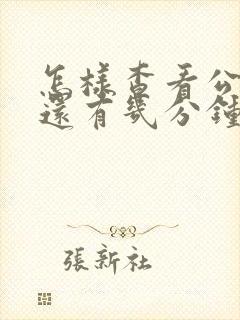 怎樣查看公
還有幾分鐘
張新社